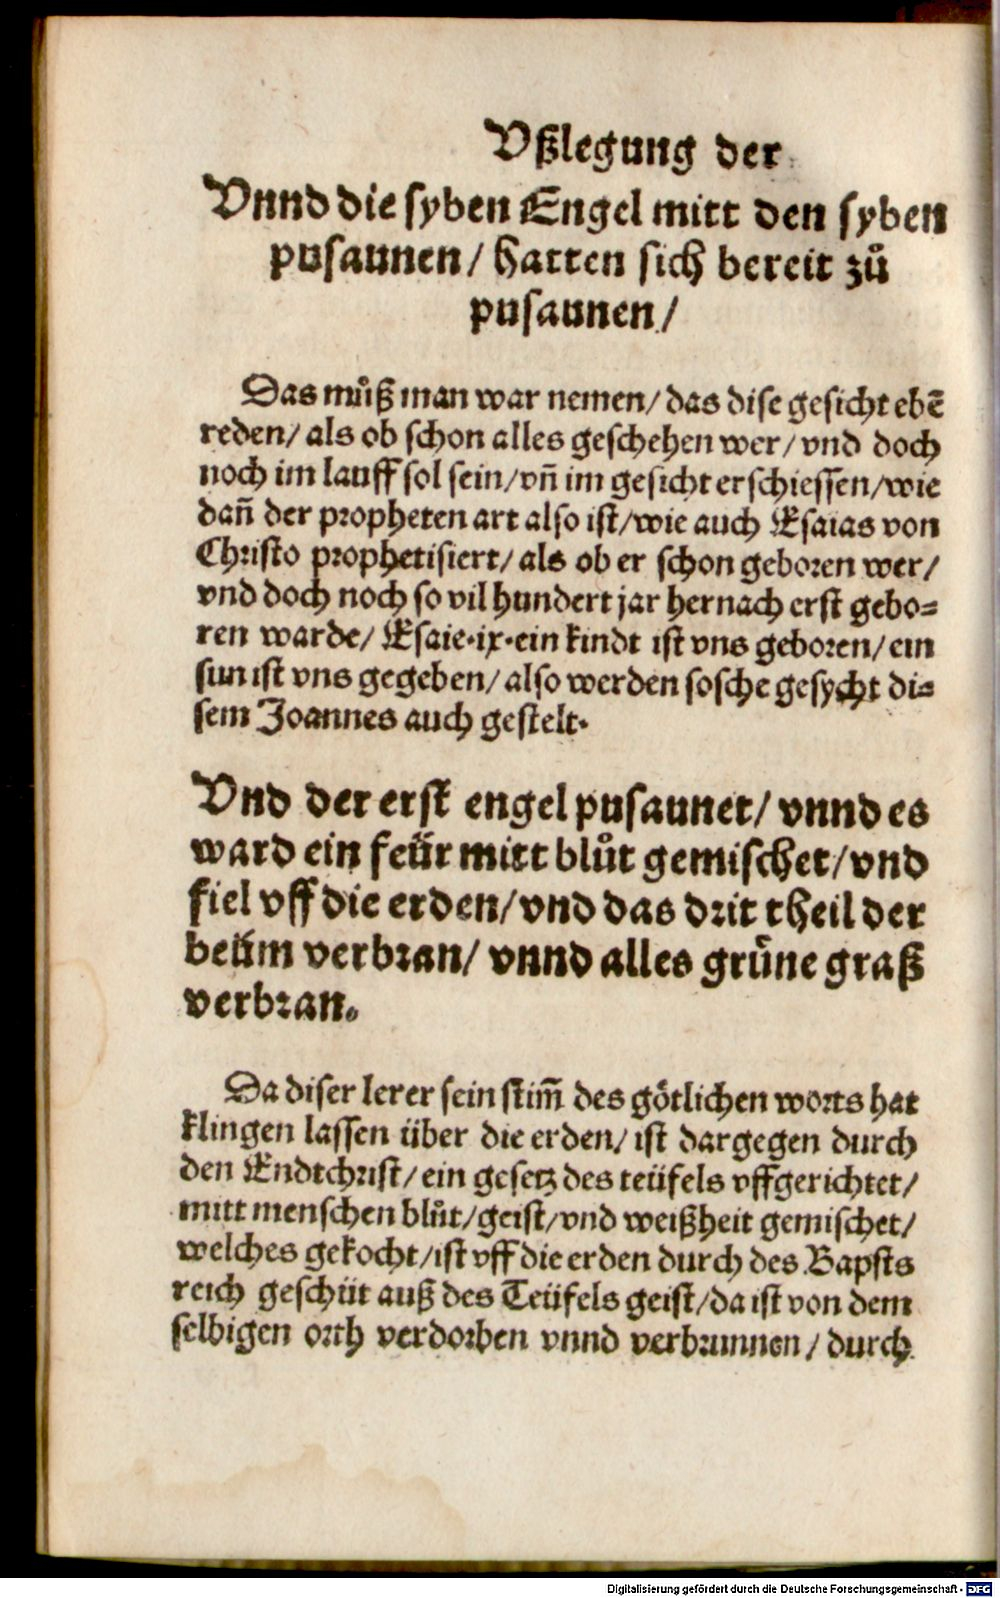 Vßlegung der
Vnnd die syben Engel mitt den syben
pusaunen/ hatten sich bereit zů
pusaunen/
Das můß man war nemen/ das dise gesicht ebē
reden/ als ob schon alles geschehen wer/ vnd doch
noch im lauff sol sein/ vñ im gesicht erschiessen/ wie
dañ der propheten art also ist/ wie auch Esaias von
Christo prophetisiert/ als ob er schon geboren wer/
vnd doch noch so vil hundert jar hernach erst gebo=
ren warde/ Esaie.ix.ein kindt ist vns geboren/ ein
sun ist vns gegeben/ also werden sosche gesycht di=
sem Joannes auch gestelt.
Vnd der erst engel pusaunet/ vnnd es
ward ein feür mitt blůt gemischet/ vnd
fiel vff die erden/ vnd das drit theil der
beüm verbran/ vnnd alles grůne graß
verbran.
Da diser lerer sein stim̃ des götlichen worts hat
klingen lassen über die erden/ ist dargegen durch
den Endtchrist/ ein gesetz des teüfels vffgerichtet/
mitt menschen blůt/ geist/ vnd weißheit gemischet/
welches gekocht/ ist vff die erden durch des Bapsts
reich geschüt auß des Teüfels geist/ da ist von dem
selbigen orth verdorben vnnd verbrunnen/ durch
Digitalisierung gefördert durch die Deutsche Forschungsgemeinschaft - DFG